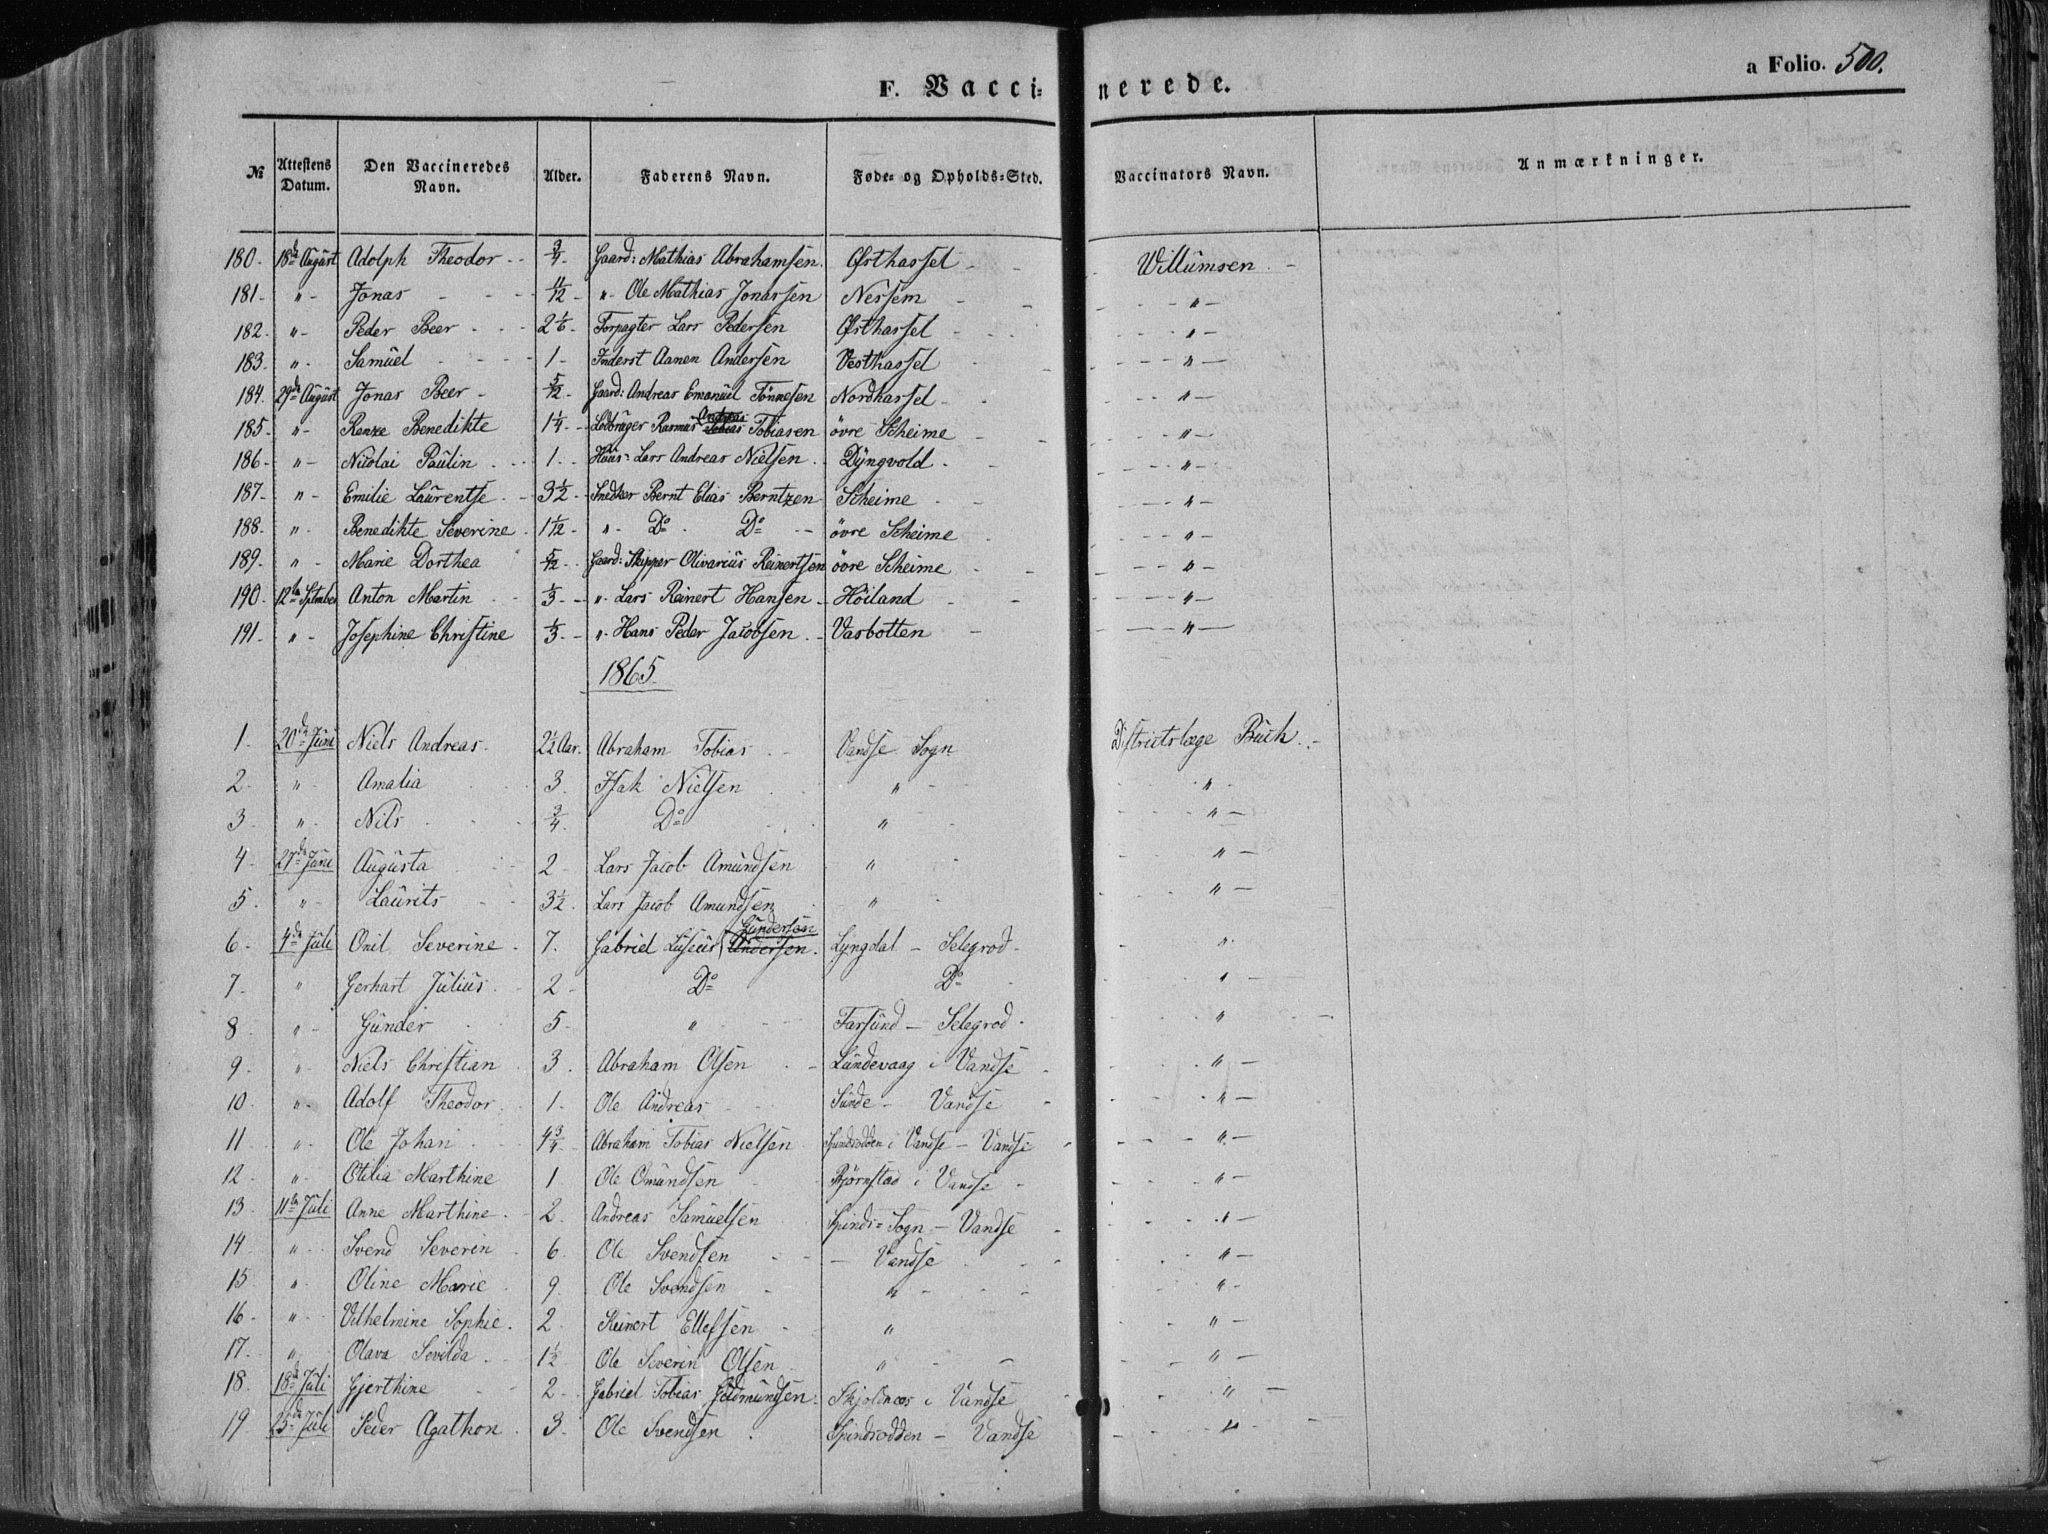 a Folio. 500.
F. Vaccinerede.
№ Attestens Datum. Den Vaccineredes Navn. Alder. Faderens Navn. Føde- og Opholds-Sted. Vaccinators Navn. Anmærkninger.
180. 18de August Adolph Theodor 3/4 Gaard: Mathias Abrahamsen. Østhassel Willumsen
181 " Jonas 11/12 " Ole Mathias Jonassen Nessem "
182 " Peder Beer 2 1/6 Forpagter Lars Pedersen Østhassel "
183 " Samuel 1 Inderst Aanen Andersen Vesthassel "
184 29de August Jonas Beer 5/12 Gaard: Andreas Emanuel Tønnesen Nordhassel "
185 " Renze Benedikte 1 1/4 Rasmus Andreas Tobiasen øvre Scheime "
186 " Nicolai Paulin 1 Lars Andreas Nielsen Dyngvold "
187 " Emilie Laurentse 3 1/2 Snedker Bernt Elias Berntzen Scheime "
188 " Benedikte Severine 1 1/2 " Do Do øvre Scheime "
189 " Marie Dorthea 5/12 Gaard: Skipper Olivarius Reinertsen øvre Scheime "
190 12te September Anton Martin 1/3 " Lars Reinert Hansen Höiland "
191 " Josephine Christine 1/3 " Hans Peder Jacobsen Vasbotten "
1865.
1. 20de Juni Niels Andreas 2 1/2 Aar. Abraham Tobias Vandse Sogn Districtslæge Buch
2 " Amalia 3. Isak Nielsen " "
3 " Nils 3/4 Do " "
4 27de Juni Augusta 2 Lars Jacob Amundsen " "
5 " Laurits 3 1/2 Lars Jacob Amundsen " "
6 4de Juli Onil Severine 7. Gabriel Luseus Andersen Gundersen Lyngdal - Selegrod "
7 " Gerhart Julius 2 Do Do "
8 " Gunder 5 " Farsund - Selegrod "
9 " Niels Christian 3. Abraham Olsen Lundevaag i Vandse "
10 " Adolf Theodor 1. Ole Andreas Sunde - Vandse "
11 " Ole Johan 4 3/4 Abraham Tobias Nielsen Spindsodden i Vandse - Vandse "
12 " Otilia Marthine 1 Ole Omundsen Bjørnstad i Vandse "
13 11te Juli Anne Marthine 2. Andreas Samuelsen Spinds-Sogn - Vandse "
14 " Svend Severin 6 Ole Svendsen - Vandse "
15 " Oline Marie 9. Ole Svendsen " "
16 " Vilhelmine Sophie. 2. Reinert Ellefsen " "
17 " Olava Sevilda 1 1/2 Ole Severin Olsen " "
18 18de Juli Gjerthine 2 Gabriel Tobias Guldmundsen Skjoldnæs i Vandse "
19 25de Juli Peder Agathon 3 Ole Svendsen Spindsodden - Vandse "